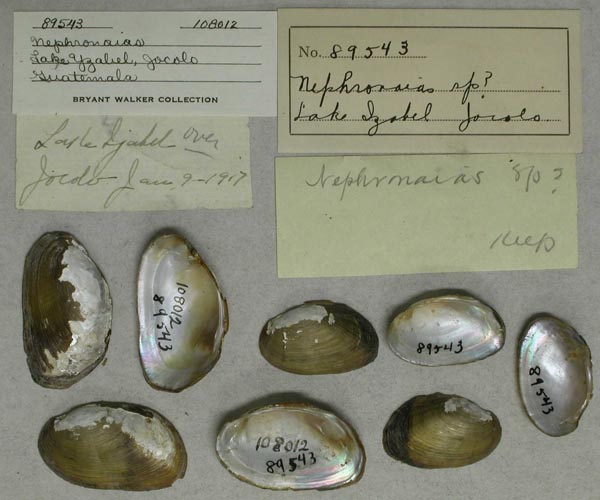 89543 108012
Nephronaias
Lake Yzabel, Jocolo
Guatemala
BRYANT WALKER COLLECTION
No. 89543
Nephronaias sp?
Lake Izabel Jocolo.
Lake Izabel over
Jocolo Jan 9-1917
Nephronaias sp?
Keep
108012
89543
89543
89543
108012
89543